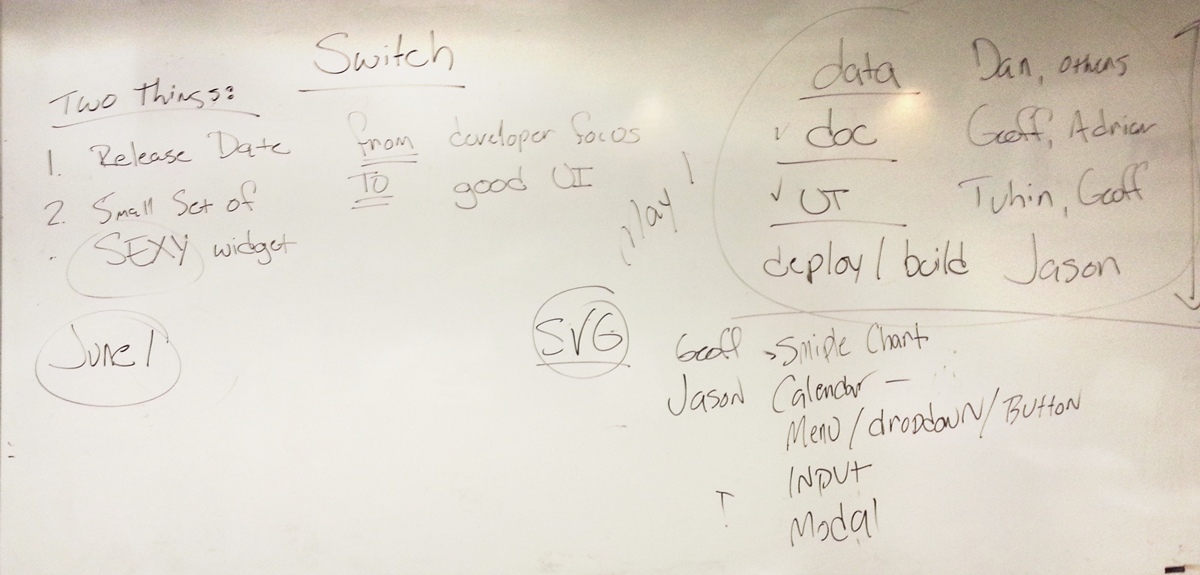 Switch
Two Things:
1. Release Date
2. Small Set of
SEXY widget
from developer focos
TO good UI
June 1
play
data Dan, others
✓ doc Geoff, Adrian
✓ UI Tuhin, Geoff
deploy / build Jason
SVG
Geoff → Smiple Chart
Jason Calendar —
Menu / dropdown / Button
INPUT
Modal